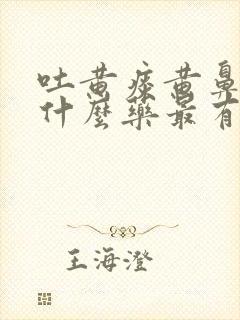 吐黄痰黄鼻
什麼藥最有
王海澄